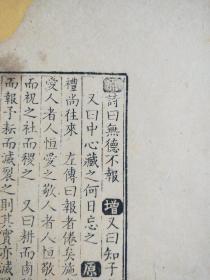 詩曰無德不報 增 又曰知子
又曰中心藏之何日忘之 原
禮尚往來 左傳曰報者倦矣施
愛人者人恒愛之敬人者人恒敬
而祝之社而稷之 又曰耕而鹵
而報予耘而滅裂之則其實亦滅